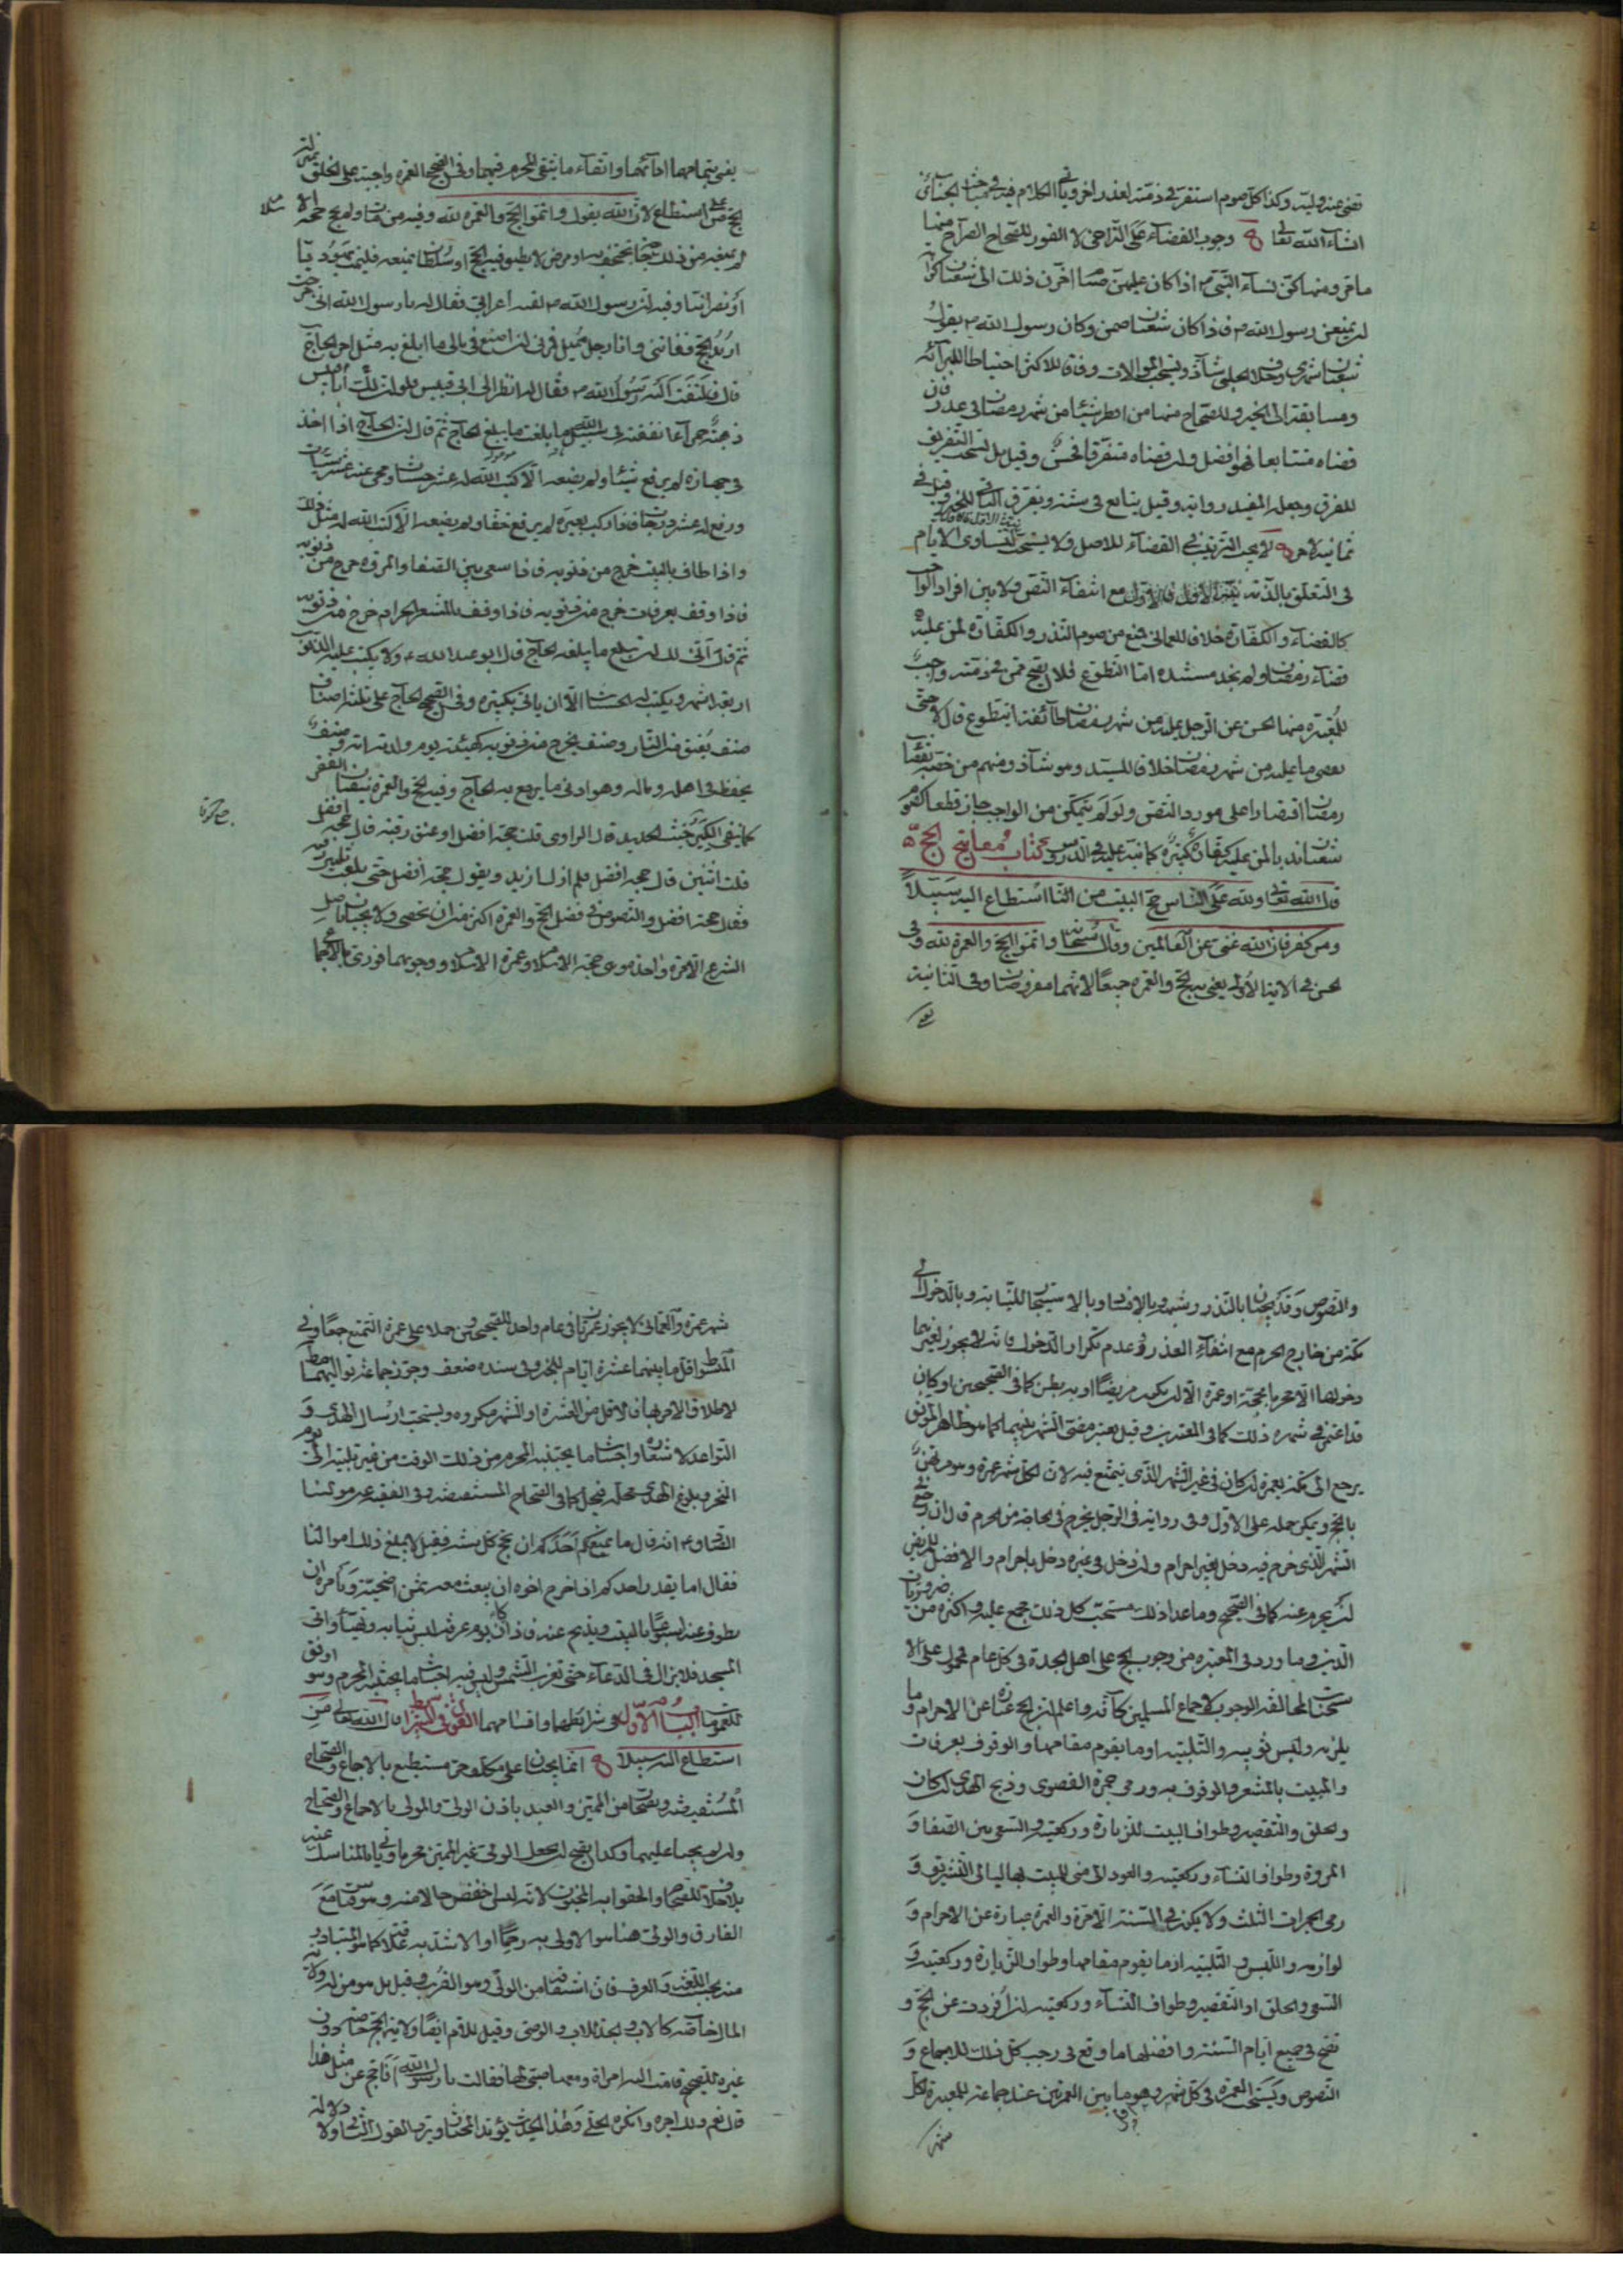 تقضى عنه وليه وكذا كل صوم استقر في ذمته لعذر اخر وياتي الكلام فيه في مباحث الجنائز
انشاء الله تعالى وجوب القضاء على التراخي لا الفور للصحاح الصراح منها
ما مر ومنها كن نساء النبي ص اذا كان عليهن صيام اخرن ذلك الى شعبان كراهة
ان يمنعن رسول الله ص فاذا كان شعبان صمن وكان رسول الله ص يقول
شعبان شهري وخلاف الحلبي شاذ ويستحب الموالات وفاقا للاكثر احتياطا للبرائة
ومسابقة الى الخير وللصحاح منها من افطر شيئا من شهر رمضان في عذر فان
قضاه متتابعا فهو افضل وان قضاه متفرقا فحسن وقيل بل يستحب التفريق
للفرق وجعله المفيد رواية وقيل يتابع في ستة ويفرق الباقي للخبر
لا يجب الترتيب في القضاء للاصل ولا يستحب لتساوى الايام
في التعلق بالذمة مع انتفاء النص ولا بين افراد الواجب
كالقضاء والكفارة خلافا للعماني فمنع من صوم النذر والكفارة لمن عليه
قضاء رمضان ولم نجد مستنده اما التطوع فلا يصح ممن في ذمته واجب
للمعتبرة منها الحسن عن الرجل عليه من شهر رمضان طائفة ايتطوع قال لا حتى
يقضى ما عليه من شهر رمضان خلافا للسيد وهو شاذ ومنهم من خصه بقضاء
رمضان اقتصارا على مورد النص ولو لم يتمكن من الواجب جاز قطعا كصوم
شعبان لمن عليه كفارة كبيرة كما نبه عليه في الدروس كتاب مفاتيح الحج
قال الله تعالى ولله على الناس حج البيت من استطاع اليه سبيلا
ومن كفر فان الله غنى عن العالمين وقال سبحانه واتموا الحج والعمرة لله وفي
الحسن في الاية الاولى يعنى به الحج والعمرة جميعا لانهما مفروضان وفي الثانية
يعنى بتمامهما ادائهما واتقاء ما يتقى المحرم فيهما وفي الصحيح العمرة واجبة على الخلق بمنزلة
الحج على من استطاع لان الله يقول واتموا الحج والعمرة لله وفيه من مات ولم يحج حجة الاسلام
لم يمنعه من ذلك حاجة تجحف به او مرض لا يطيق فيه الحج او سلطان يمنعه فليمت يهوديا
او نصرانيا وفيه ان رسول الله ص لقيه اعرابي فقال له يا رسول الله انى خرجت
اريد الحج ففاتنى وانا رجل مميل فمرنى ان اصنع في مالى ما ابلغ به مثل اجر الحاج
قال فالتفت اليه رسول الله ص فقال له انظر الى ابى قبيس فلو ان لك ابا قبيس
ذهبة حمراء انفقته في سبيل الله ما بلغت ما يبلغ الحاج ثم قال ان الحاج اذا اخذ
في جهازه لم يرفع شيئا ولم يضعه الا كتب الله له عشر حسنات ومحى عنه عشر سيئات
ورفع له عشر درجات فاذا ركب بعيره لم يرفع خفا ولم يضعه الا كتب الله له مثل ذلك
واذا طاف بالبيت خرج من ذنوبه فاذا سعى بين الصفا والمروة خرج من ذنوبه
فاذا وقف بعرفات خرج من ذنوبه فاذا وقف بالمشعر الحرام خرج من ذنوبه
ثم قال انى لك ان تبلغ ما يبلغه الحاج قال ابو عبد الله ع ولا يكتب عليه الذنوب
اربعة اشهر ويكتب له الحسنات الا ان ياتي بكبيرة وفي الصحيح الحاج على ثلثة اصناف
صنف يعتق من النار وصنف يخرج من ذنوبه كهيئة يوم ولدته امه وصنف
يحفظ في اهله وماله وهو ادنى ما يرجع به الحاج وفيه الحج والعمرة ينفيان الفقر
كما ينفى الكير خبث الحديد قال الراوى قلت حجة افضل او عتق رقبة قال حجة افضل
قلت اثنتين قال حجة افضل فلم ازل ازيد ويقول حجة افضل حتى بلغت ثلثين رقبة
فقال حجة افضل والنصوص في فضل الحج والعمرة اكثر من ان تحصى ولا يجبان باصل
الشرع الا مرة واحدة وهى حجة الاسلام وعمرة الاسلام ووجوبهما فورى بالاجماع
والنصوص وقد يجبان بالنذر وشبهه وبالافساد وبالاستيجار للنيابة وبالدخول الى
مكة من خارج الحرم مع انتفاء العذر وعدم تكرار الدخول فانه لا يجوز لغيرهما
دخولها الا محرما بحجة او عمرة الا ان يكون مريضا او به بطن كما في الصحيحين او كان
يرجع الى مكة بعمرة ان كان في غير الشهر الذي يتمتع فيه لان لكل شهر عمرة وهو مرتهن
بالحج ويمكن حمله على الاول وفي رواية في الرجل يخرج في الحاجة من الحرم قال ان رجع في
الشهر الذي خرج فيه دخل بغير احرام وان دخل في غيره دخل باحرام والافضل للمريض
ان يحرم عنه كما في الصحيح وما عدا ذلك مستحب كل ذلك مجمع عليه واكثره من ضروريات
الدين وما ورد في المعتبرة من وجوب الحج على اهل الجدة في كل عام محمول على الا
ستحباب لمخالفة الوجوب لاجماع المسلمين كافة واعلم ان الحج عبارة عن الاحرام وما
يلزمه ولبس ثوبيه والتلبية او ما يقوم مقامها والوقوف بعرفات
والمبيت بالمشعر والوقوف به ورمى جمرة القصوى وذبح الهدى ان كان
والحلق والتقصير وطواف البيت للزيارة وركعتيه والسعى بين الصفا و
المروة وطواف النساء وركعتيه والعود الى منى للمبيت بها ليالى التشريق و
رمى الجمرات الثلث ولا يكون في السنة الا مرة والعمرة عبارة عن الاحرام و
لوازمه واللبس والتلبية او ما يقوم مقامها وطواف الزيارة وركعتيه و
السعى والحلق او التقصير وطواف النساء وركعتيه ان افردت عن الحج و
تصح في جميع ايام السنة وافضلها ما وقع في رجب كل ذلك للاجماع و
النصوص ويستحب العمرة في كل شهر وهو ما بين العمرتين عند جماعة للمعتبرة لكل
شهر
شهر عمرة والعماني لا يجوز عمرتان في عام واحد للصحيحين وحملا على عمرة التمتع جمعا وفي
المبسوط اقل ما بينهما عشرة ايام للخبر وفي سنده ضعف وجوز جماعة تواليهما مطلقا
لاطلاق الامر بها والاقل من العشرة او الشهر مكروه ويستحب ارسال الهدى و
التواعد لاشعاره واجتناب ما يجتنبه المحرم من ذلك الوقت من غير تلبية الى يوم
النحر وبلوغ الهدى محله فيحل كما في الصحاح المستفيضة وفي الفقيه عن مولينا
الصادق ع انه قال ما يمنع احدكم ان يحج كل سنة فقيل لا يبلغ ذلك اموالنا
فقال اما يقدر احدكم اذا خرج اخوه ان يبعث معه بثمن اضحية ويامره ان
يطوف عنه اسبوعا بالبيت ويذبح عنه فاذا كان يوم عرفة لبس ثيابه وتهيأ واتى
المسجد فلا يزال في الدعاء حتى تغرب الشمس وليس فيه اجتناب ما يجتنبه المحرم وهو اوفق
للعمومات الباب الاول في شرايطهما واقسامهما القول في الشرايط قال الله تعالى من
استطاع اليه سبيلا انما يجبان على مكلف حر مستطيع بالاجماع والصحاح
المستفيضة ويصحان من المميز والعبد باذن الولى والمولى بالاجماع والصحاح
وان لم يجبا عليهما وكذا يصح ان يجعل الولى غير المميز محرما وياتي بالمناسك عنه
بلا خلاف للصحاح والحقوا به المجنون لانه ليس اخفض حالا منه وهو قياس مع
الفارق والولى هنا هو الاولى به رحما او الاشد به علاقة كما هو المتبادر
منه بحسب اللغة والعرف فان اشتقاقه من الولى وهو القرب وقيل بل هو من له ولاية
المال خاصة كالاب والجد للاب والوصى وقيل للام ايضا ولاية الحج خاصة دون
غيره للصحيح قامت اليه امراة ومعها صبى لها فقالت يا رسول الله ايحج عن مثل هذا
قال نعم ولك اجره وانكره الحلي وهذا الحديث يؤيد المختار ويرد القول الثاني ولا دلالة